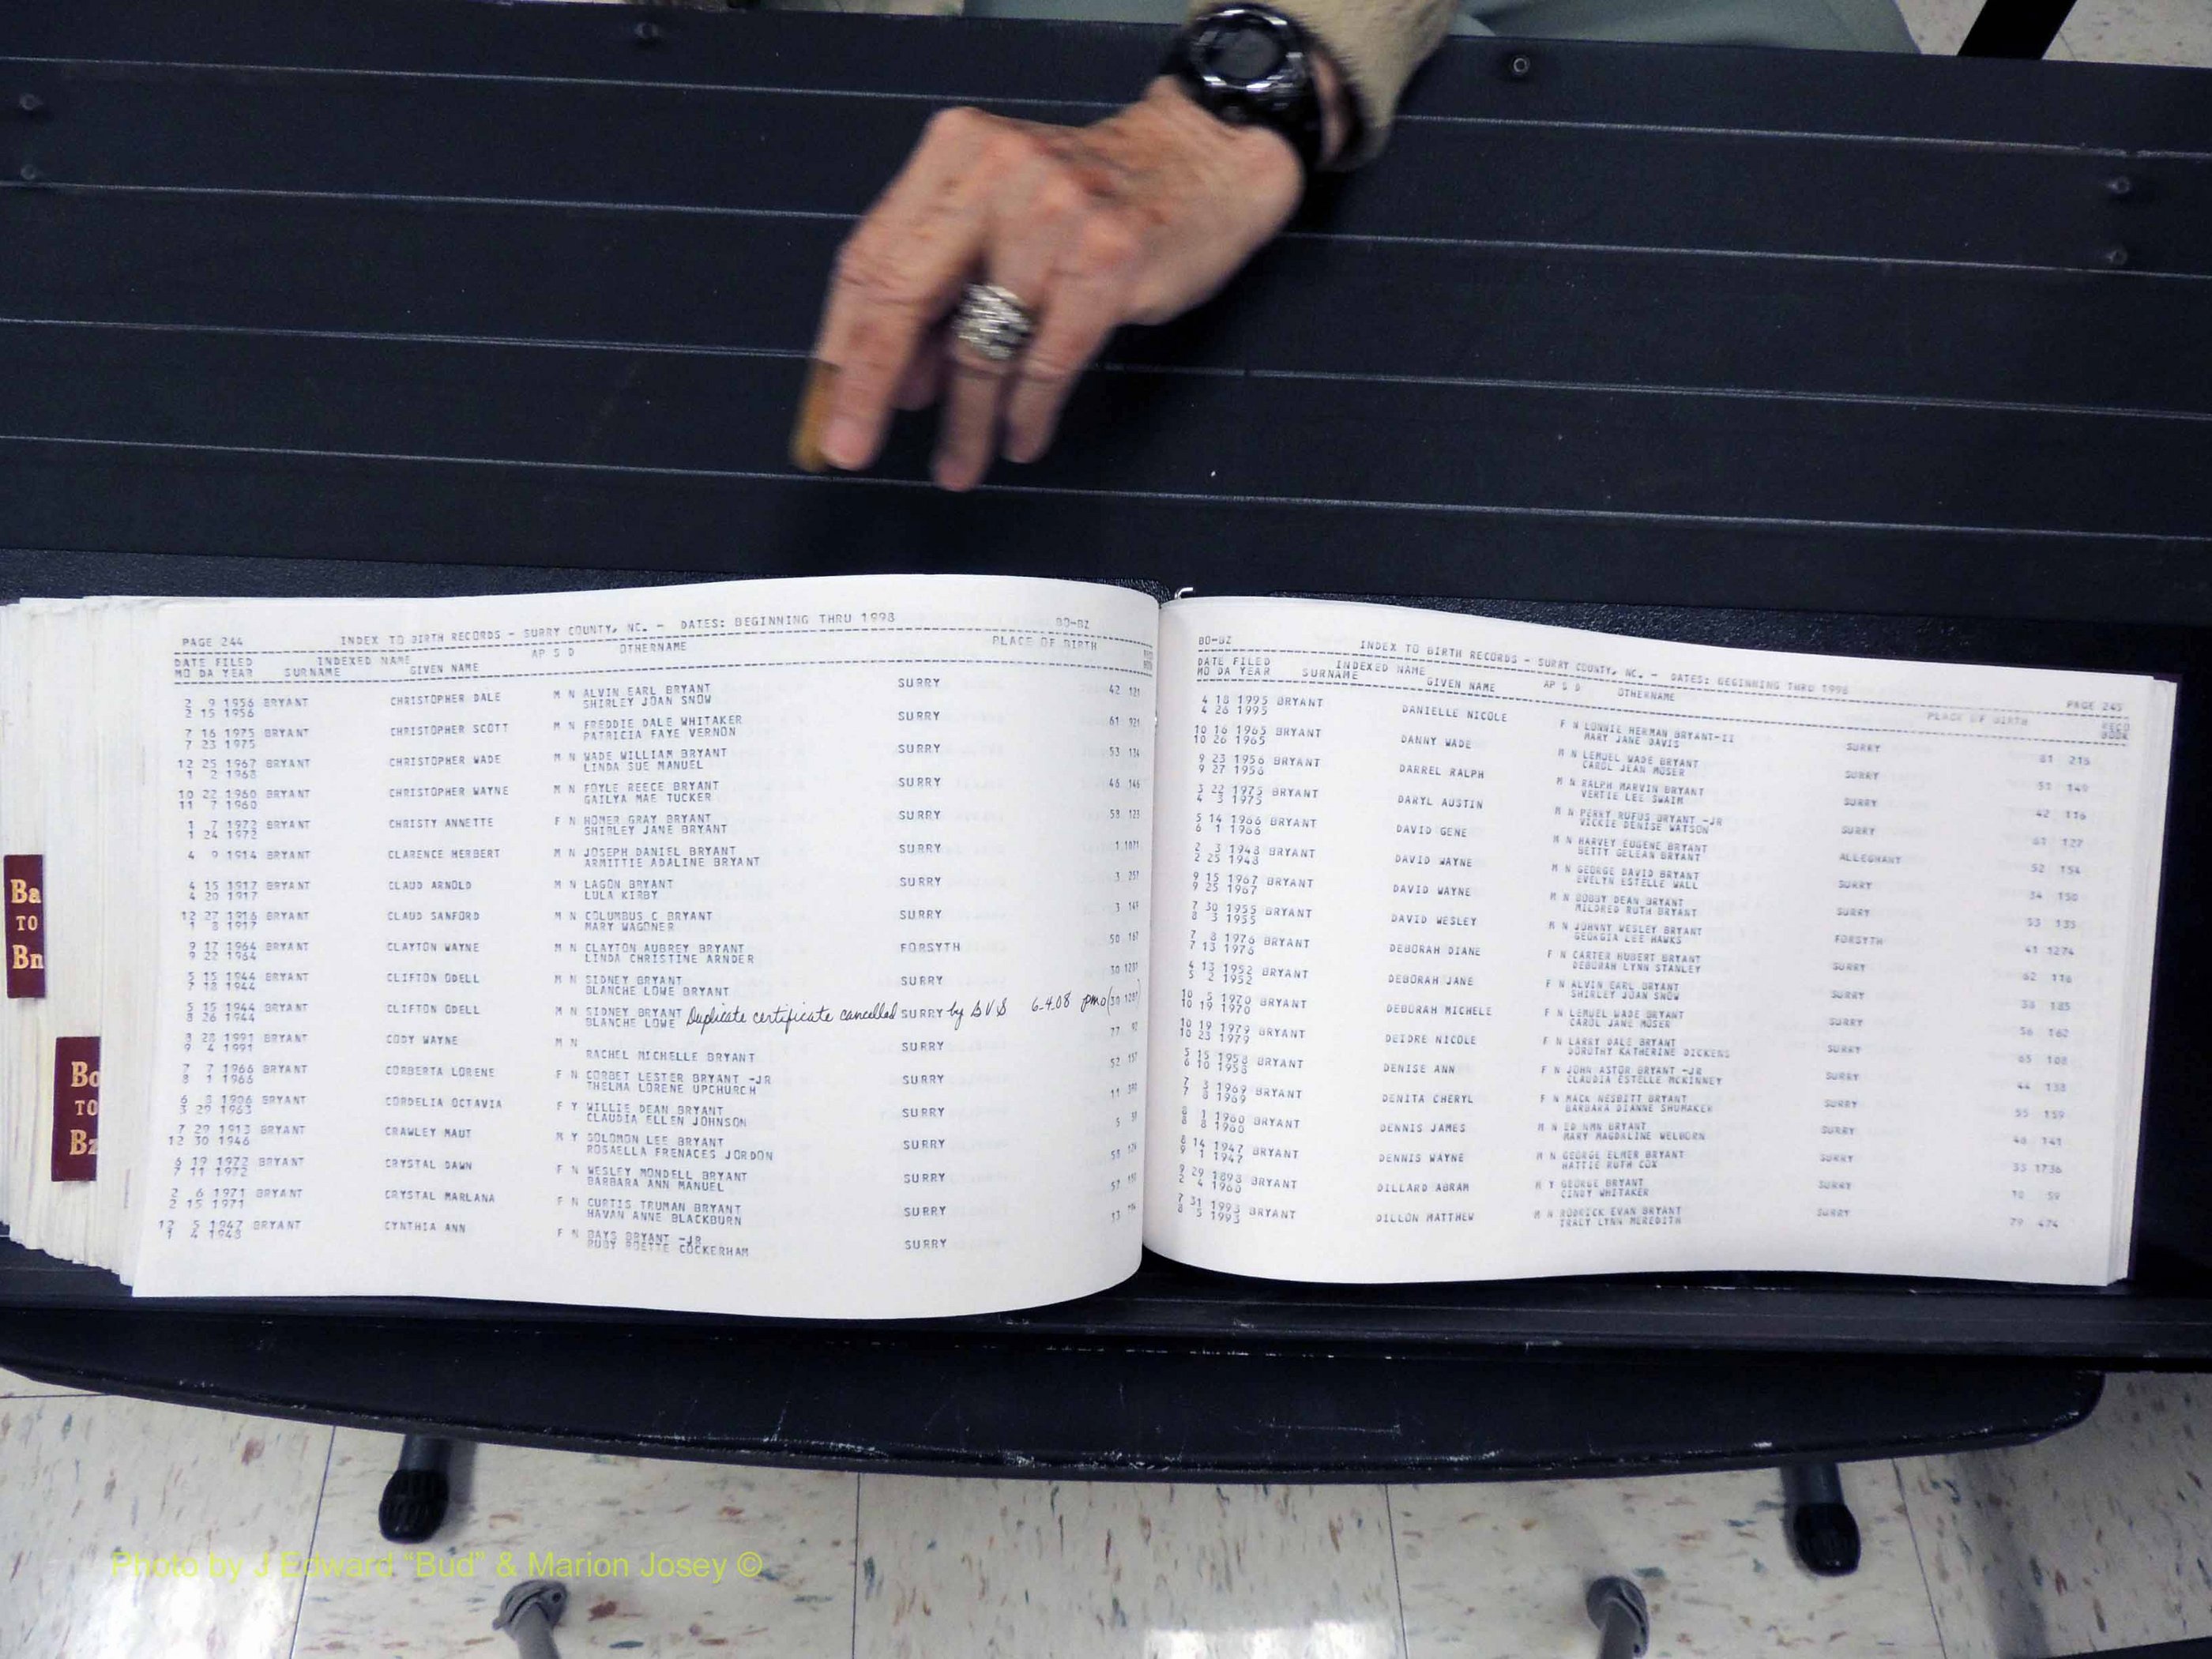 PAGE 244 INDEX TO BIRTH RECORDS - SURRY COUNTY, NC. - DATES: BEGINNING THRU 1998 BO-BZ
DATE FILED INDEXED NAME AP S D OTHERNAME PLACE OF BIRTH
MO DA YEAR SURNAME GIVEN NAME
2 9 1956 BRYANT CHRISTOPHER DALE M N ALVIN EARL BRYANT SURRY 42 121
2 15 1956 SHIRLEY JOAN SNOW
7 16 1975 BRYANT CHRISTOPHER SCOTT M N FREDDIE DALE WHITAKER SURRY 61
7 23 1975 PATRICIA FAYE VERNON
12 25 1967 BRYANT CHRISTOPHER WADE M N WADE WILLIAM BRYANT SURRY 53
1 2 1968 LINDA SUE MANUEL
10 22 1960 BRYANT CHRISTOPHER WAYNE M N FOYLE REECE BRYANT SURRY 46
11 7 1960 GAILYA MAE TUCKER
1 7 1972 BRYANT CHRISTY ANNETTE F N HOMER GRAY BRYANT SURRY 58
1 24 1972 SHIRLEY JANE BRYANT
4 9 1914 BRYANT CLARENCE HERBERT M N JOSEPH DANIEL BRYANT SURRY 1
ARMITTIE ADALINE BRYANT
4 15 1917 BRYANT CLAUD ARNOLD M N LAGON BRYANT SURRY 3
4 20 1917 LULA KIRBY
12 27 1916 BRYANT CLAUD SANFORD M N COLUMBUS C BRYANT SURRY 3
1 8 1917 MARY WAGONER
9 17 1964 BRYANT CLAYTON WAYNE M N CLAYTON AUBREY BRYANT FORSYTH 50
9 22 1964 LINDA CHRISTINE ARNDER
5 15 1944 BRYANT CLIFTON ODELL M N SIDNEY BRYANT SURRY 30
7 18 1944 BLANCHE LOWE BRYANT
5 15 1944 BRYANT CLIFTON ODELL M N SIDNEY BRYANT Duplicate certificate cancelled SURRY by BVS 6-4-08 pmo
8 26 1944 BLANCHE LOWE
3 28 1991 BRYANT CODY WAYNE M N SURRY 77
9 4 1991 RACHEL MICHELLE BRYANT
7 7 1966 BRYANT CORBERTA LORENE F N CORBET LESTER BRYANT -JR SURRY 52
8 1 1966 THELMA LORENE UPCHURCH
6 8 1906 BRYANT CORDELIA OCTAVIA F Y WILLIE DEAN BRYANT SURRY 11
3 29 1963 CLAUDIA ELLEN JOHNSON
7 29 1913 BRYANT CRAWLEY MAUT M Y SOLOMON LEE BRYANT SURRY 5
12 30 1946 ROSAELLA FRENACES JORDON
6 19 1972 BRYANT CRYSTAL DAWN F N WESLEY MONDELL BRYANT SURRY 58
7 11 1972 BARBARA ANN MANUEL
2 6 1971 BRYANT CRYSTAL MARLANA F N CURTIS TRUMAN BRYANT SURRY 57
2 15 1971 HAVAN ANNE BLACKBURN
12 5 1947 BRYANT CYNTHIA ANN F N BAYS BRYANT -JR SURRY
1 4 1948 RUBY ROETTE COCKERHAM
BO-BZ INDEX TO BIRTH RECORDS - SURRY COUNTY, NC. - DATES: BEGINNING THRU 1998 PAGE 245
DATE FILED INDEXED NAME AP S D OTHERNAME PLACE OF BIRTH RECD
MO DA YEAR SURNAME GIVEN NAME BOOK
4 18 1995 BRYANT DANIELLE NICOLE F N LONNIE HERMAN BRYANT-II SURRY 81 215
4 26 1995 MARY JANE DAVIS
10 16 1965 BRYANT DANNY WADE M N LEMUEL WADE BRYANT SURRY 51 149
10 26 1965 CAROL JEAN MOSER
9 23 1956 BRYANT DARREL RALPH M N RALPH MARVIN BRYANT SURRY 42 116
9 27 1956 VERTIE LEE SWAIM
3 22 1975 BRYANT DARYL AUSTIN M N PERRY RUFUS BRYANT -JR SURRY 61 127
4 3 1975 VICKIE DENISE WATSON
5 14 1966 BRYANT DAVID GENE M N HARVEY EUGENE BRYANT ALLEGHANY 52 154
6 1 1966 BETTY GELEAN BRYANT
2 3 1948 BRYANT DAVID WAYNE M N GEORGE DAVID BRYANT SURRY 34 150
2 25 1948 EVELYN ESTELLE WALL
9 15 1967 BRYANT DAVID WAYNE M N BOBBY DEAN BRYANT SURRY 53 135
9 25 1967 MILDRED RUTH BRYANT
7 30 1955 BRYANT DAVID WESLEY M N JOHNNY WESLEY BRYANT FORSYTH 41 1274
8 3 1955 GEORGIA LEE HAWKS
7 8 1976 BRYANT DEBORAH DIANE F N CARTER HUBERT BRYANT SURRY 62 116
7 13 1976 DEBORAH LYNN STANLEY
4 13 1952 BRYANT DEBORAH JANE F N ALVIN EARL BRYANT SURRY 38 185
5 2 1952 SHIRLEY JOAN SNOW
10 5 1970 BRYANT DEBORAH MICHELE F N LEMUEL WADE BRYANT SURRY 56 162
10 19 1970 CAROL JANE MOSER
10 19 1979 BRYANT DEIDRE NICOLE F N LARRY DALE BRYANT SURRY 65 108
10 23 1979 DOROTHY KATHERINE DICKENS
5 15 1958 BRYANT DENISE ANN F N JOHN ASTOR BRYANT -JR SURRY 44 138
6 10 1958 CLAUDIA ESTELLE MCKINNEY
7 3 1969 BRYANT DENITA CHERYL F N MACK NESBITT BRYANT SURRY 55 159
7 8 1969 BARBARA DIANNE SHUMAKER
8 1 1960 BRYANT DENNIS JAMES M N ED NMN BRYANT SURRY 46 141
8 8 1960 MARY MAGDALINE WELBORN
8 14 1947 BRYANT DENNIS WAYNE M N GEORGE ELMER BRYANT SURRY 33 1736
9 1 1947 HATTIE RUTH COX
9 29 1898 BRYANT DILLARD ABRAM M Y GEORGE BRYANT SURRY 10 59
2 4 1960 CINDY WHITAKER
7 31 1993 BRYANT DILLON MATTHEW M N RODRICK EVAN BRYANT SURRY 79 474
8 5 1993 TRACY LYNN MEREDITH
Ba
TO
Bn
Bo
TO
Bz
Photo by J Edward “Bud” & Marion Josey ©